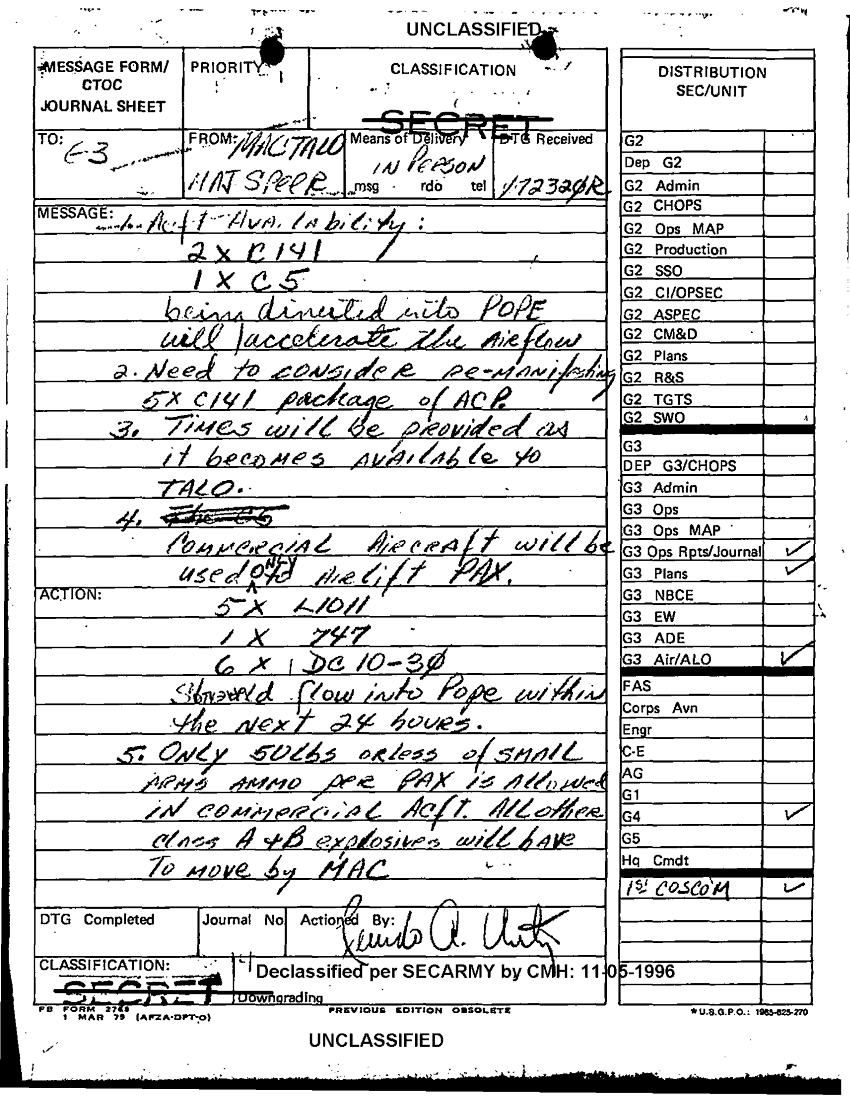 UNCLASSIFIED
MESSAGE FORM/
CTOC
JOURNAL SHEET
PRIORITY
CLASSIFICATION
SECRET
DISTRIBUTION
SEC/UNIT
TO: G-3
FROM: MAC TALO
MAJ SPEER
Means of Delivery
IN PERSON
msg rdo tel
DTG Received
172320R
MESSAGE: Acft Availability:
2 X C141
1 X C5
being diverted into POPE
will accelerate the Airflow
2. Need to consider re-manifesting
5X C141 package of ACP.
3. Times will be provided as
it becomes available to
TALO.
4.
Commercial Aircraft will be
used only to Airlift PAX.
ACTION:
5 X L1011
1 X 747
6 X DC 10-30
Should flow into Pope within
the next 24 hours.
5. Only 50lbs or less of small
arms ammo per PAX is allowed
in commercial Acft. All other
class A & B explosives will have
To move by MAC
DTG Completed
Journal No
Actioned By:
CLASSIFICATION:
SECRET
14
Declassified per SECARMY by CMH: 11-05-1996
Downgrading
FB FORM 2748
1 MAR 79 (AFZA-DPT-O)
PREVIOUS EDITION OBSOLETE
UNCLASSIFIED
G2
Dep G2
G2 Admin
G2 CHOPS
G2 Ops MAP
G2 Production
G2 SSO
G2 CI/OPSEC
G2 ASPEC
G2 CM&D
G2 Plans
G2 R&S
G2 TGTS
G2 SWO
G3
DEP G3/CHOPS
G3 Admin
G3 Ops
G3 Ops MAP
G3 Ops Rpts/Journal ✓
G3 Plans ✓
G3 NBCE
G3 EW
G3 ADE
G3 Air/ALO ✓
FAS
Corps Avn
Engr
C-E
AG
G1
G4 ✓
G5
Hq Cmdt
1st COSCOM ✓
*U.S.G.P.O.: 1985-625-270